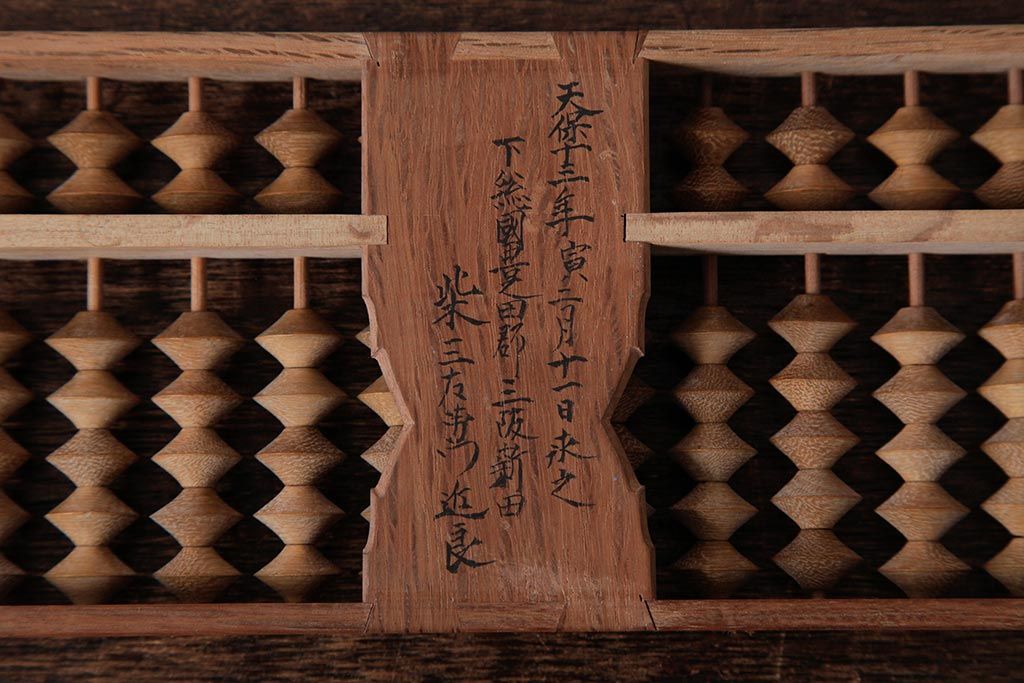 天保十三年寅二月十一日求之
下総國豊田郡三阪新田
柴三左衛門近良